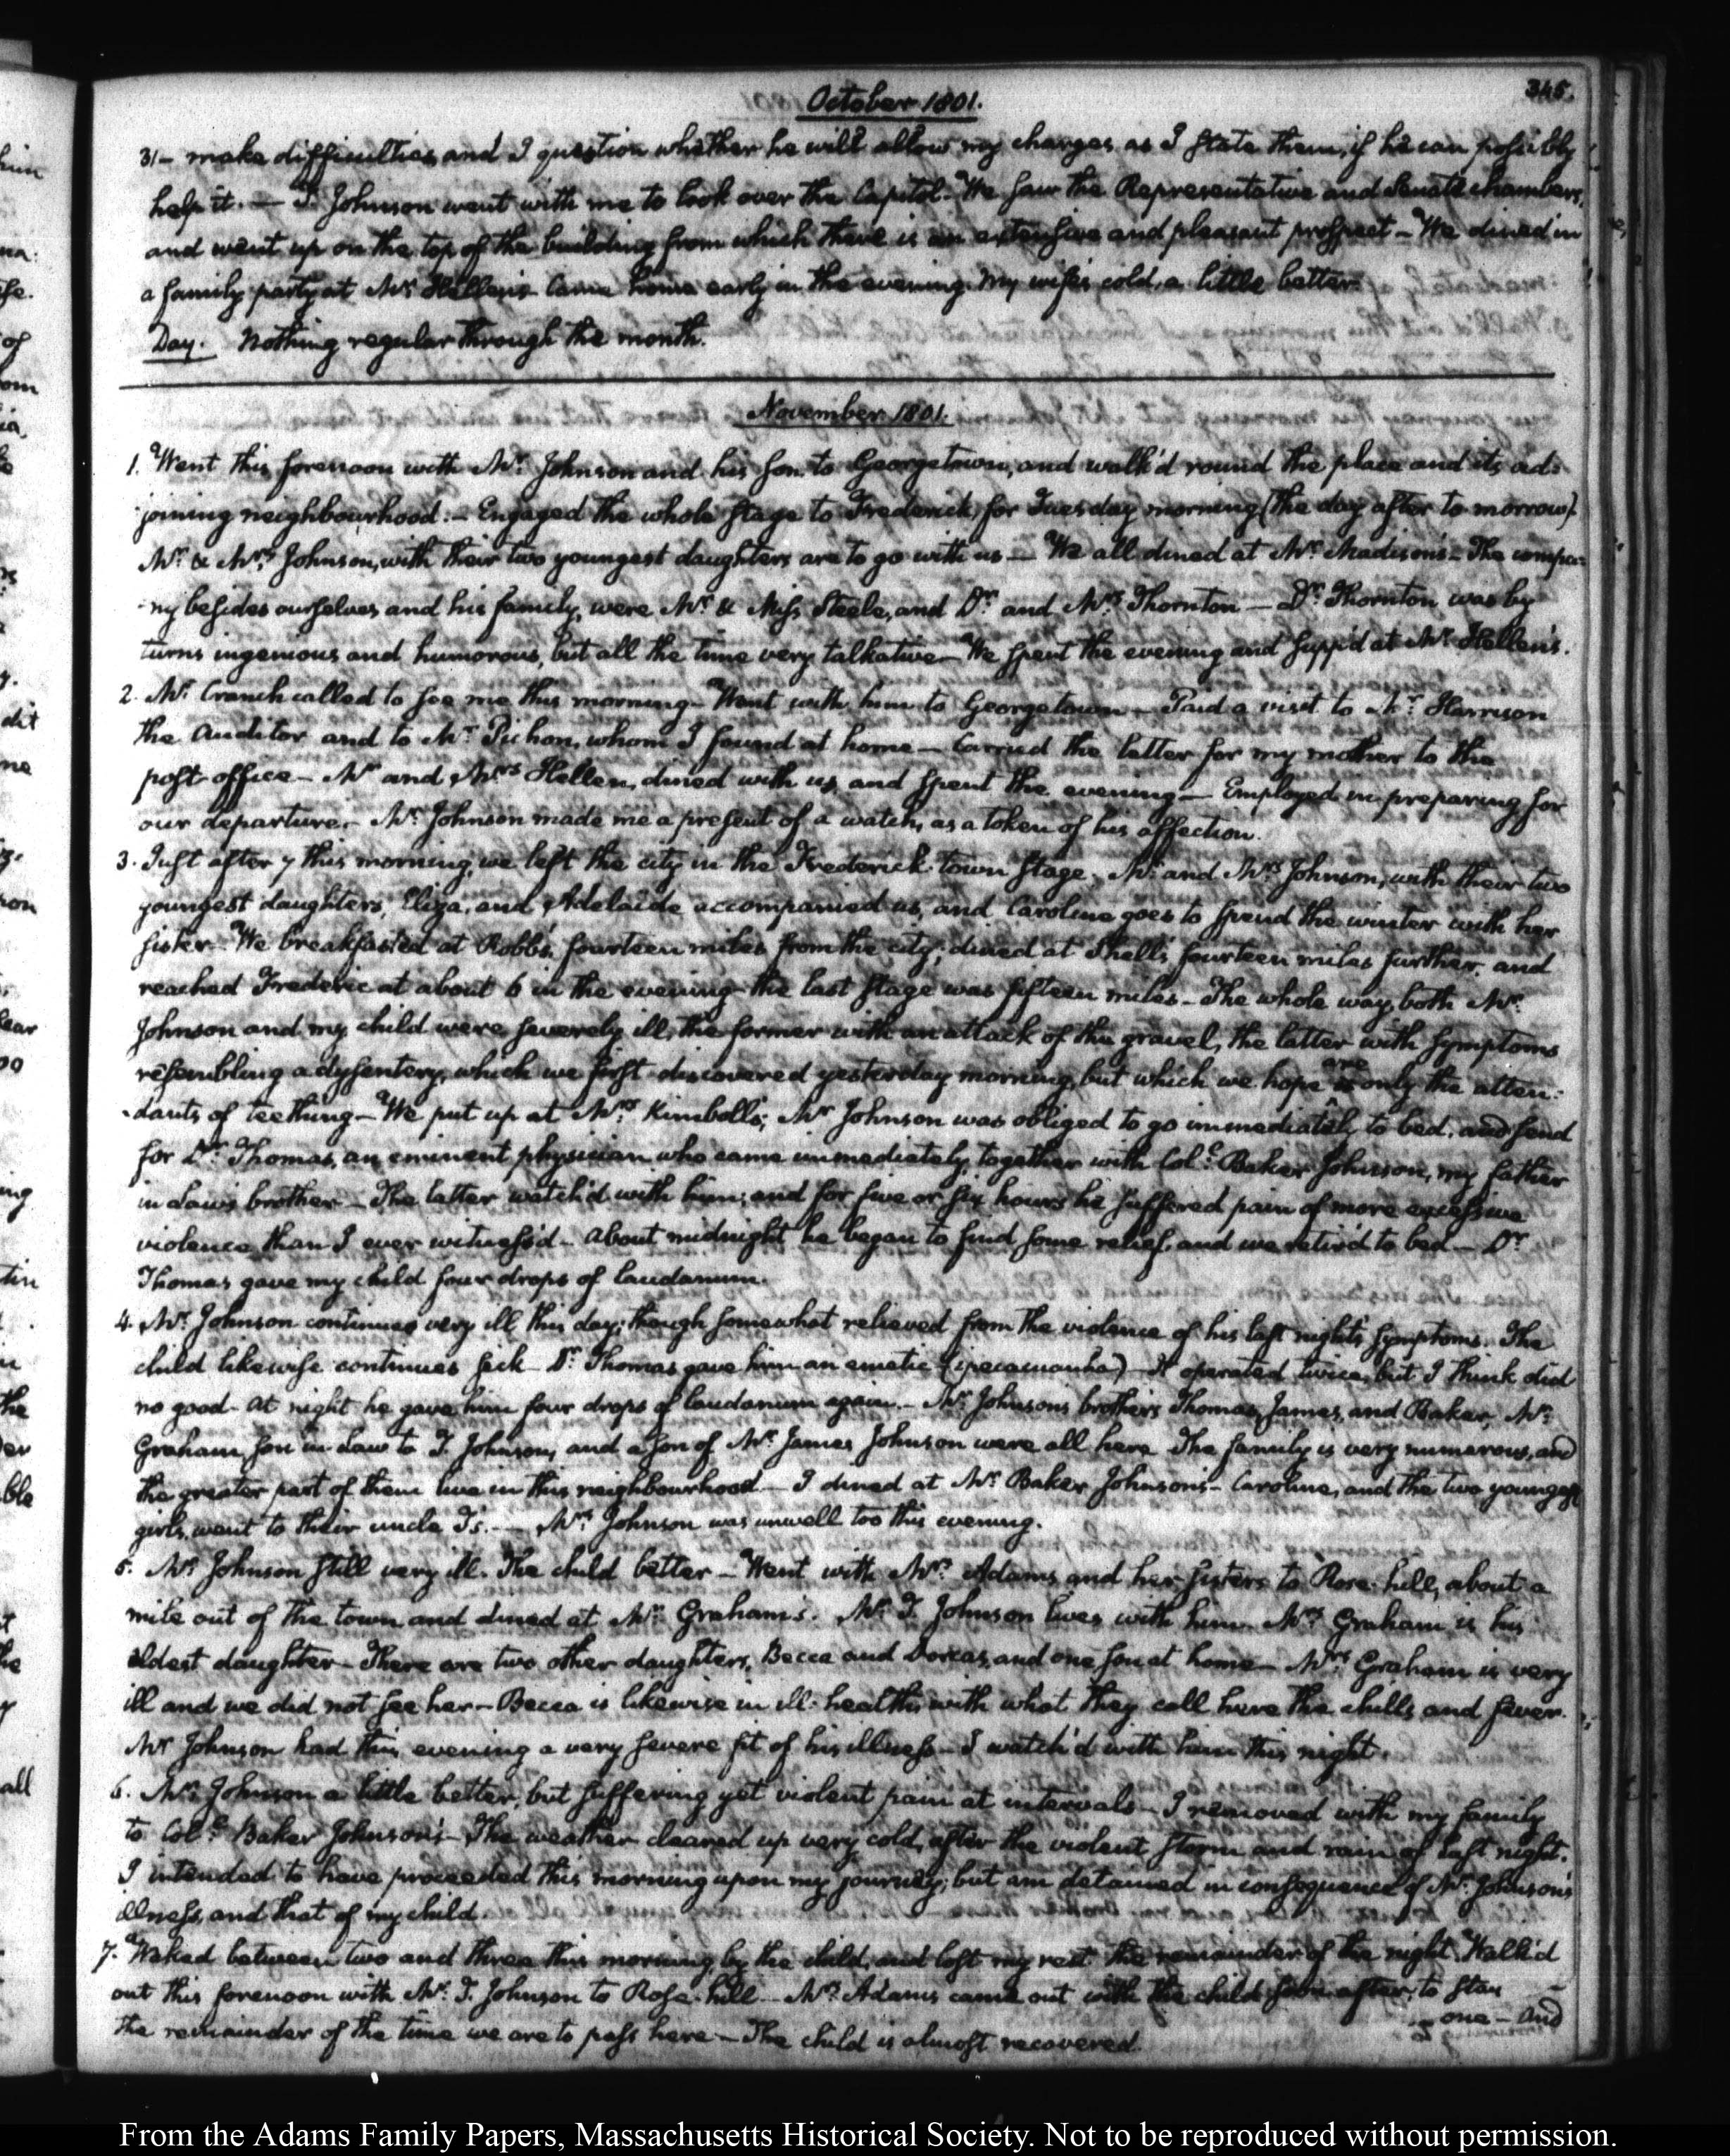 345.
October 1801.
31- make difficulties and I question whether he will allow my charges as I state them, if he can possibly
help it. — T. Johnson went with me to look over the Capitol. We saw the Representative and Senate chambers,
and went up on the top of the building from which there is an extensive and pleasant prospect — We dined in
a family party at Mr. Hellen's. Came home early in the evening. My wife's cold, a little better.
Day. Nothing regular through the month.
November 1801.
1. Went this forenoon with Mr. Johnson and his son to Georgetown, and walk'd round the place and its ad-
joining neighbourhood:- Engaged the whole stage to Frederick, for Tuesday morning (the day after to-morrow).
Mr. & Mrs. Johnson, with their two youngest daughters are to go with us — We all dined at Mr. Madison's — The compa-
ny besides ourselves and his family, were Mr. & Miss Steele, and Dr. and Mrs. Thornton — Dr. Thornton was by
turns ingenious and humorous, but all the time very talkative — We spent the evening and supp'd at Mr. Hellen's.
2. Mr. Cranch called to see me this morning — Went with him to Georgetown — Paid a visit to Mr. Harrison
the Auditor and to Mr. Pichon, whom I found at home — Carried the letter for my mother to the
post-office — Mr. and Mrs. Hellen, dined with us, and spent the evening — Employed in preparing for
our departure. — Mr. Johnson made me a present of a watch, as a token of his affection.
3. Just after 7 this morning, we left the city in the Frederick-town stage. Mr. and Mrs. Johnson, with their two
youngest daughters, Eliza, and Adelaide accompanied us, and Caroline goes to spend the winter with her
sister. We breakfasted at Robb's, fourteen miles from the city; dined at Shell's, fourteen miles further, and
reached Frederic at about 6 in the evening — the last stage was fifteen miles — The whole way, both Mr.
Johnson and my child were severely ill, the former with an attack of the gravel, the latter with symptoms
resembling a dysentery, which we first discovered yesterday morning, but which we hope are only the atten-
dants of teething — We put up at Mrs. Kimboll's; Mr. Johnson was obliged to go immediately to bed, and send
for Dr. Thomas, an eminent physician who came immediately, together with Coll. Baker Johnson, my father
in law's brother — The latter watch'd with him; and for five or six hours he suffered pain of more excessive
violence than I ever witness'd — About midnight he began to find some relief, and we retir'd to bed — Dr.
Thomas gave my child four drops of laudanum.
4. Mr. Johnson continues very ill this day; though somewhat relieved from the violence of his last night's symptoms. The
child likewise continues sick — Dr. Thomas gave him an emetic (ipecacuanha) — It operated twice, but I think did
no good. At night he gave him four drops of laudanum again. — Mr. Johnson's brothers Thomas, James, and Baker, Mr.
Graham son in law to T. Johnson, and a son of Mr. James Johnson were all here. The family is very numerous, and
the greater part of them live in this neighbourhood — I dined at Mr. Baker Johnson's — Caroline, and the two youngest
girls, went to their uncle T's. — Mrs. Johnson was unwell too this evening.
5. Mr. Johnson still very ill. The child better — Went with Mrs. Adams, and her sisters to Rose-hill, about a
mile out of the town and dined at Mr. Graham's. Mr. T. Johnson lives with him. Mrs. Graham is his
eldest daughter — There are two other daughters, Becca and Dorcas, and one son at home — Mrs. Graham is very
ill and we did not see her — Becca is likewise in ill-health, with what they call here the chills and fever.
Mr. Johnson had this evening a very severe fit of his illness — I watch'd with him this night.
6. Mr. Johnson a little better, but suffering yet violent pain at intervals — I removed with my family
to Coll. Baker Johnson's — The weather cleared up very cold, after the violent storm and rain of last night.
I intended to have proceeded this morning upon my journey; but am detained in consequence of Mr. Johnson's
illness, and that of my child.
7. Waked between two and three this morning by the child, and lost my rest the remainder of the night. Walk'd
out this forenoon with Mr. T. Johnson to Rose-hill — Mrs. Adams came out with the child soon after, to stay
one — and
the remainder of the time we are to pass here — The child is almost recovered.
From the Adams Family Papers, Massachusetts Historical Society. Not to be reproduced without permission.